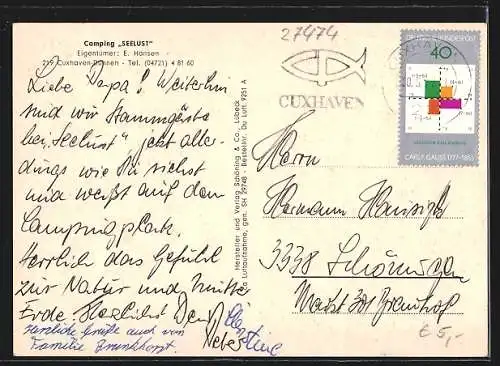 27474
Camping „SEELUST"
Eigentümer: E. Hansen
219 Cuxhaven-Duhnen - Tel. (04721) 4 81 60
Liebe Papa! Weiterhin
sind wir Stammgäste
bei „Seelust" jetzt aller-
dings wie Du siehst
und weißt auf dem
Campingplatz.
Herrlich das Gefühl
zur Natur und Mutter
Erde. Herzlichst Dein
herzliche Grüße auch von
Familie Brunkhorst.
Hersteller und Verlag Schöning & Co., Lübeck
Luftaufnahme, gen. SH 29748 - Bestellnr. Du Luft 9251 A
CUXHAVEN
CUXHAVEN
DEUTSCHE BUNDESPOST
40
CARL F. GAUSS 1777-1855
Herrn
Hermann
3338 Schöningen
€ 5,-